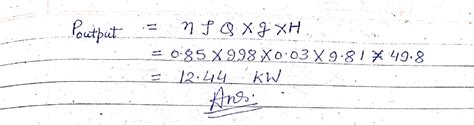 Poutput = η ρ Q x g x H
= 0.85 x 998 x 0.03 x 9.81 x 49.8
= 12.44 KW
Ans.